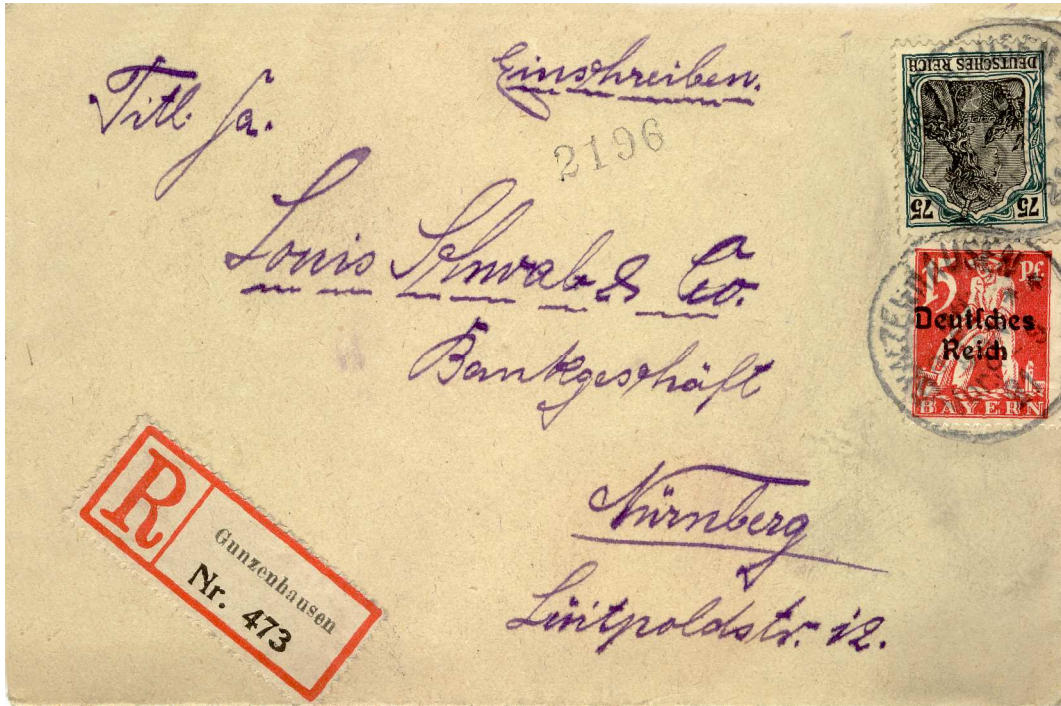 Einschreiben.
Titl. Fa.
2196
Louis Schwab & Co.
Bankgeschäft
Nürnberg
Luitpoldstr. 12.
R
Gunzenhausen
Nr. 473
DEUTSCHES REICH
75 75
15 Pf
Deutsches
Reich
BAYERN
GUNZENHAUSEN